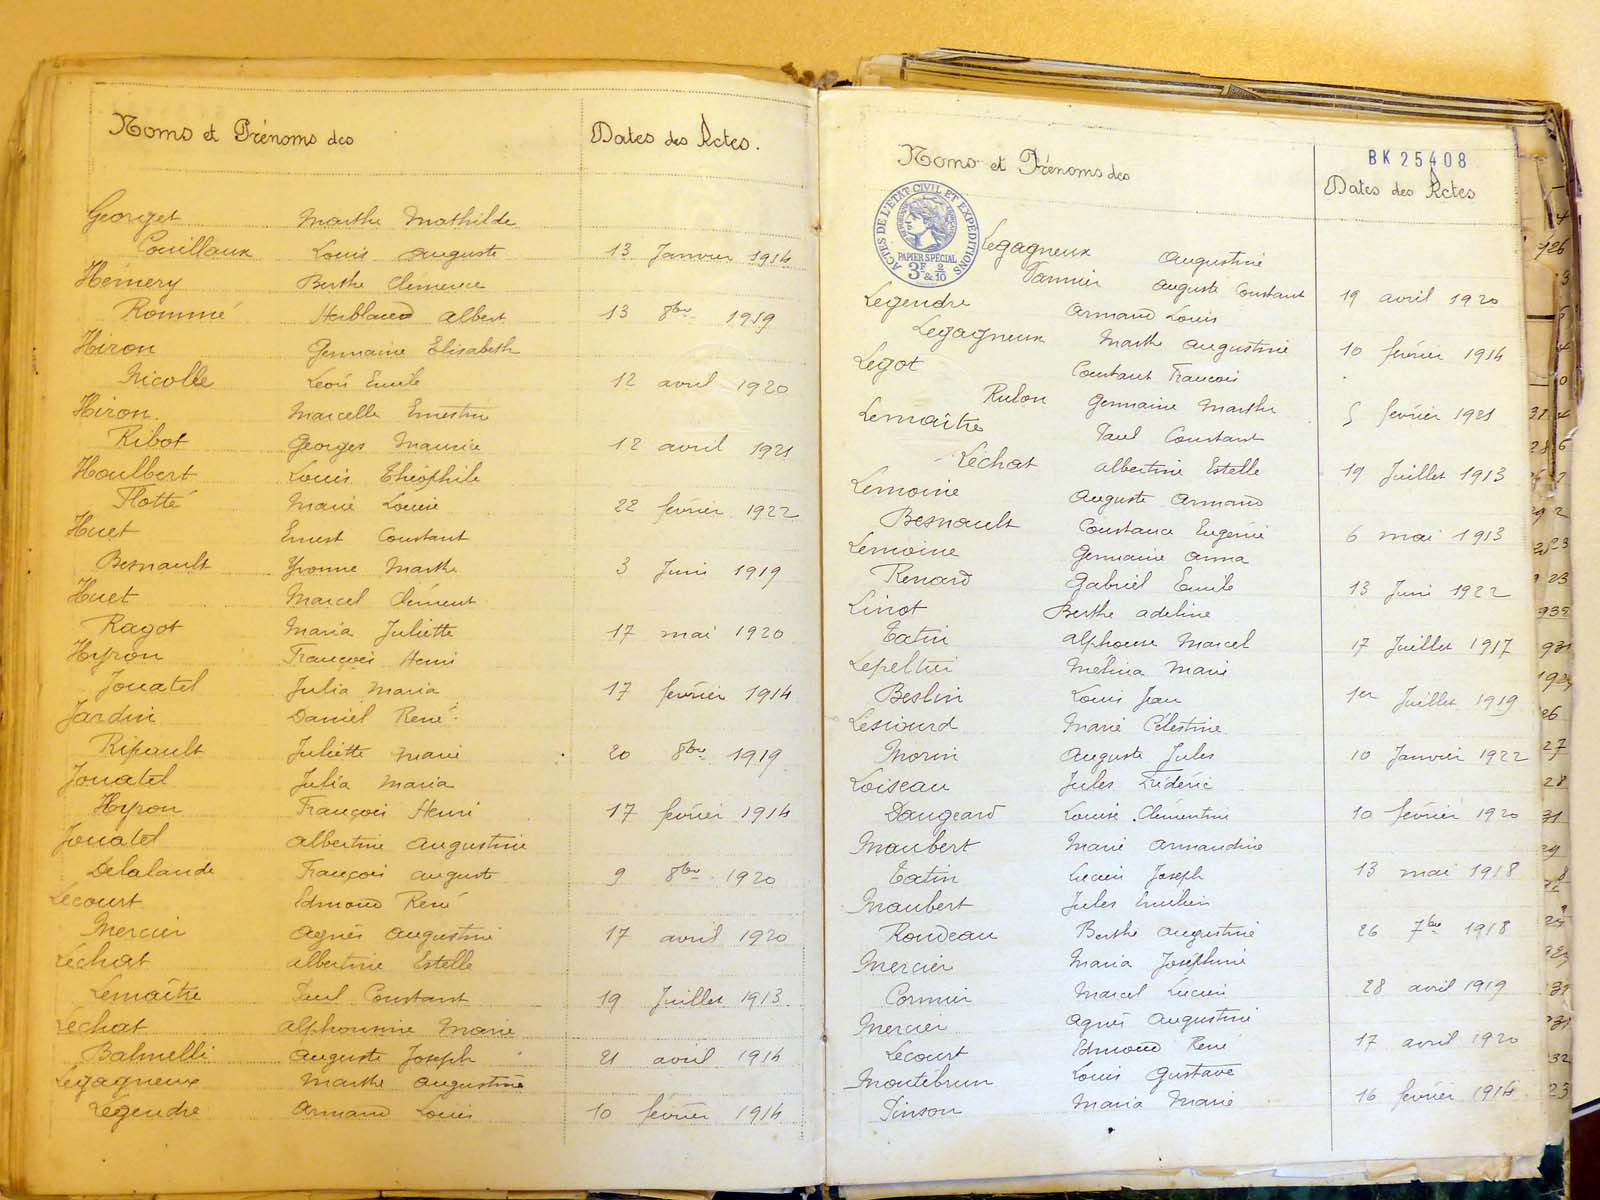 Noms et Prénoms des Dates des Actes.
Georget Marthe Mathilde
Couillaux Louis Auguste 13 Janvier 1914
Hémery Berthe Clémence
Rommé Albert 13 8bre 1919
Hiron Germaine Elisabeth
Nicolle Léon Emile 12 avril 1920
Hiron. Marcelle Ernestine
Ribot Georges Maurice 12 avril 1921
Houlbert Louis Théophile
Flotté Marie Louise 22 février 1922
Huet Ernest Constant
Besnault Yvonne Marthe 3 Juin 1919
Huet Marcel Clément
Ragot Maria Juliette 17 mai 1920
Hyron François Henri
Jouatel Julia Maria 17 février 1914
Jardin Daniel René
Ripault Juliette Marie 20 8bre 1919
Jouatel Julia Maria
Hyron François Henri 17 février 1914
Jouatel Albertine Augustine
Delalande François Auguste 9 8bre 1920
Lecourt Edmond René
Mercier Agnès Augustine 17 avril 1920
Léchat Albertine Estelle
Lemaître Paul Constant 19 Juillet 1913
Léchat Alphonsine Marie
Balmelli Auguste Joseph 21 avril 1914
Legagneux Marthe Augustine
Legendre Armand Louis 10 février 1914
BK 25408
Noms et Prénoms des Dates des Actes
ACTES DE L'ETAT CIVIL ET EXPEDITIONS
PAPIER SPÉCIAL
3F & 2/10
Legagneux Augustine
Vannier Auguste Constant 19 avril 1920
Legendre Armand Louis
Legagneux Marthe Augustine 10 février 1914
Legot Constant François
Rulon Germaine Marthe 5 février 1921
Lemaître Paul Constant
Léchat Albertine Estelle 19 Juillet 1913
Lemoine Auguste Armand
Besnault Constance Eugénie 6 mai 1913
Lemoine Germaine Anna
Renard Gabriel Emile 13 Juin 1922
Linot Berthe Adeline
Tatin Alphonse Marcel 17 Juillet 1917
Mélina Marie
Beslin Louis Jean 1er Juillet 1919
Lesiourd Marie Célestine
Morin Auguste Jules 10 Janvier 1922
Loiseau Jules Frédéric
Daugeard Louise Clémentine 10 février 1920
Maubert Marie Armandine
Tatin Lucien Joseph 13 mai 1918
Maubert Jules Emilien
Rondeau Berthe Augustine 26 7bre 1918
Mercier Maria Joséphine
Cormier Marcel Lucien 28 avril 1919
Mercier Agnès Augustine
Lecourt Edmond René 17 avril 1920
Montébrun Louis Gustave
Pinson Maria Marie 16 février 1914